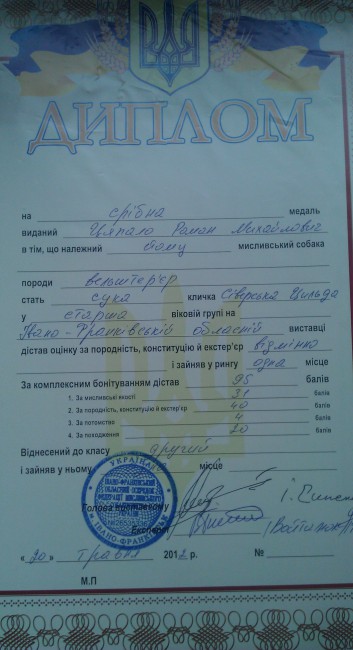 ДИПЛОМ
на срібна медаль
виданий Цяпало Роман Михайлович
в тім, що належний йому мисливський собака
породи вельштер'єр
стать сука кличка Сіверська Цильда
у старша віковій групі на
Івано-Франківській обласній виставці
дістав оцінку за породність, конституцію й екстер'єр відмінно
і зайняв у рингу одна місце
За комплексним бонітуванням дістав 95 балів
1. За мисливські якості 31 балів
2. За породність, конституцію й екстер'єр 40 балів
3. За потомство 4 балів
4. За походження 20 балів
Віднесений до класу другий
і зайняв у ньому місце
УКРАЇНА
ІВАНО-ФРАНКІВСЬК
Голова
Експерт
«20» травня 2012 р. №
М.П